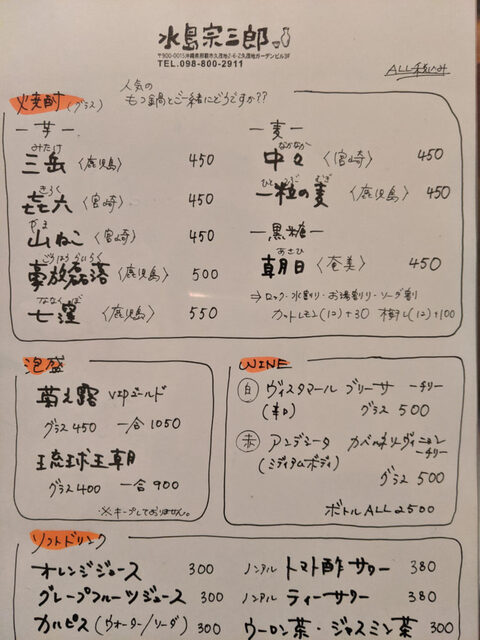 水島宗三郎
〒900-0015沖縄県那覇市久茂地2-6-2久茂地ガーデンビル3F
TEL.098-800-2911
ALL税込み
人気の
もつ鍋とご一緒にどうですか??
焼酎(グラス)
ー芋ー
みたけ
三岳〈鹿児島〉 450
きろく
㐂六〈宮崎〉 450
やま
山ねこ〈宮崎〉 450
ごうほうらいらく
豪放磊落〈鹿児島〉 500
ななくぼ
七窪〈鹿児島〉 550
ー麦ー
なかなか
中々〈宮崎〉 450
ひとつぶ むぎ
一粒の麦〈鹿児島〉 450
ー黒糖ー
あさひ
朝日〈奄美〉 450
→ロック・水割り・お湯割り・ソーダ割り
カットレモン(1コ)+30 梅干し(1コ)+100
泡盛
菊之露 VIPゴールド
グラス450 一合1050
琉球王朝
グラス400 一合900
※キープしておりません。
WINE
白 ヴィスタマール ブリーサ ーチリー
(辛口) グラス 500
赤 アンデミータ カベルネソーヴィニヨン
ーチリー
(ミディアムボディ)
グラス 500
ボトルALL2500
ソフトドリンク
オレンジジュース 300
グレープフルーツジュース 300
カルピス(ウォーター/ソーダ) 300
ノンアル トマト酢サワー 380
ノンアル ティーサワー 380
ウーロン茶・ジャスミン茶 300